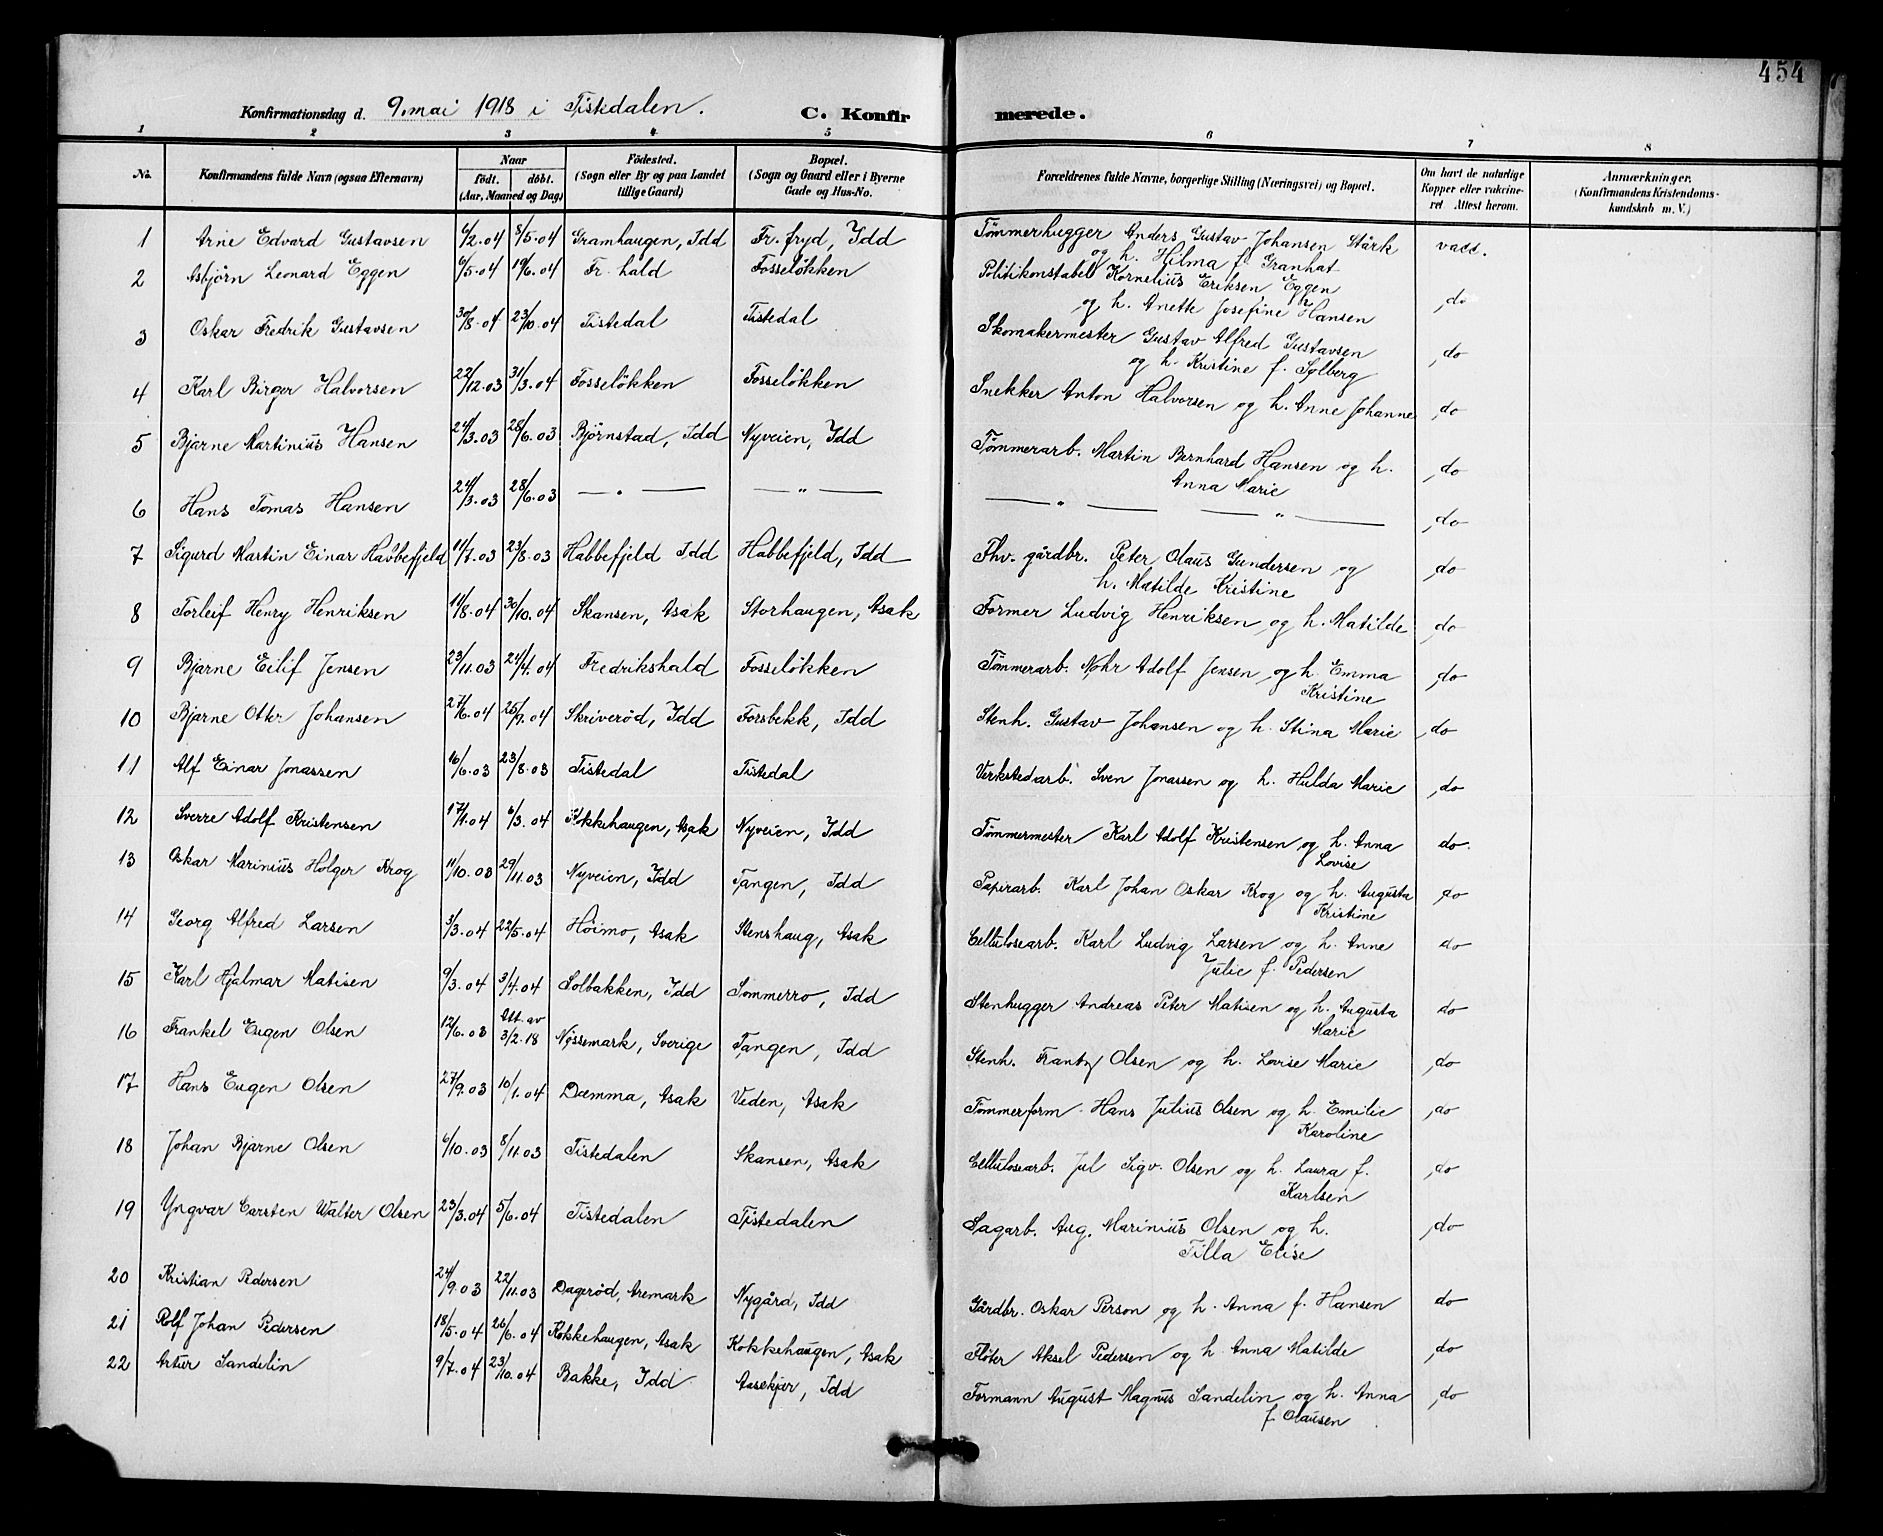 454
Konfirmationsdag d. 9. mai 1918 i Tistedalen. C. Konfirmerede.
1 2 3 4 5 6 7 8
No. Konfirmandens fulde Navn (ogsaa Efternavn) Naar født. døbt. (Aar, Maaned og Dag) Födested. (Sogn eller By og paa Landet tillige Gaard) Bopæl. (Sogn og Gaard eller i Byerne Gade og Hus-No. Forældrenes fulde Navne, borgerlige Stilling (Næringsvei) og Bopæl. Om havt de naturlige Kopper eller vakcineret. Attest herom. Anmærkninger. (Konfirmandens Kristendomskundskab m. V.)
1 Arne Edvard Gustavsen 6/2.04 8/5.04 Gramhaugen, Idd Fr. fryd, Idd Tømmerhugger Anders Gustav Johansen Stårk og h. Hilma f. Granhat vacc.
2 Asbjørn Leonard Eggen 6/5.04 19/6.04 Fr. hald Fosseløkken Politikonstabel Kornelius Eriksen Eggen og h. Anette Josefine Hansen do
3 Oskar Fredrik Gustavsen 30/8.04 23/10.04 Tistedal Tistedal Skomakermester Gustav Alfred Gustavsen og h. Kristine f. Solberg do
4 Karl Birger Halvorsen 22/12.03 31/3.04 Fosseløkken Fosseløkken Snekker Anton Halvorsen og h. Anne Johanne do
5 Bjarne Martinius Hansen 24/3.03 28/6.03 Bjørnstad, Idd Nyveien, Idd Tømmerarb. Martin Bernhard Hansen og h. Anna Marie do
6 Hans Tomas Hansen 24/3.03 28/6.03 — " — — " — — " — — " — do
7 Sigurd Martin Einar Habbefjeld 11/7.03 23/8.03 Habbefjeld Idd Habbefjeld, Idd Fhv. gårdbr. Peter Olaus Gundersen og h. Matilde Kristine do
8 Torleif Henry Henriksen 14/8.04 30/10.04 Skansen, Asak Storhaugen, Asak Former Ludvig Henriksen og h. Matilde do
9 Bjarne Eilif Jensen 23/11.03 24/4.04 Fredrikshald Fosseløkken Tømmerarb. Nohr Adolf Jensen og h. Emma Kristine do
10 Bjarne Otter Johansen 27/6.04 25/7.04 Skriverød, Idd Forsbekk, Idd Stenh. Gustav Johansen og h. Stina Marie do
11 Alf Einar Jonassen 16/6.03 23/8.03 Tistedal Tistedal Verkstedarb. Sven Jonassen og h. Hulda Marie do
12 Sverre Adolf Kristensen 17/1.04 6/3.04 Kokkehaugen, Asak Nyveien, Idd Tømmermester Karl Adolf Kristensen og h. Anna Lovise do.
13 Oskar Marinius Holger Krog 11/10.03 29/11.03 Nyveien, Idd Tangen, Idd Papirarb. Karl Johan Oskar Krog og h. Augusta Kristine do
14 Georg Alfred Larsen 3/3.04 22/5.04 Høimo, Asak Stenshaug, Asak Cellulosearb. Karl Ludvig Larsen og h. Anne Julie f. Pedersen do
15 Karl Hjalmar Matisen 9/3.04 3/4.04 Solbakken, Idd Sommerro, Idd Stenhugger Andreas Peter Matisen og h. Augusta Marie do
16 Frankel Eugen Olsen 12/6.03 Att. av 3/2.18 Nössemark, Sverige Tangen, Idd Stenh. Frantz Olsen og h. Lovise Marie do
17 Hans Eugen Olsen 27/9.03 10/1.04 Dæmma, Asak Veden, Asak Tømmerform. Hans Julius Olsen og h. Emilie Karoline do
18 Johan Bjarne Olsen 6/10.03 8/11.03 Tistedalen Skansen, Asak Cellulosearb. Jul Sigv. Olsen og h. Laura f. Karlsen do
19 Yngvar Carsten Walter Olsen 23/3.04 5/6.04 Tistedalen Tistedalen Sagarb. Aug. Marinius Olsen og h. Tilla Elise do
20 Kristian Pedersen 24/9.03 22/11.03 Dagerød, Aremark Nygård, Idd Gårdbr. Oskar Person og h. Anna f. Hansen do
21 Rolf Johan Pedersen 18/5.04 26/6.04 Kokkehaugen, Asak Kokkehaugen, Asak Fløter Aksel Pedersen og h. Anna Matilde do
22 Artur Sandelin 9/7.04 23/10.04 Bakke, Idd Aasekjær, Idd Formann August Magnus Sandelin og h. Anna f. Olausen do